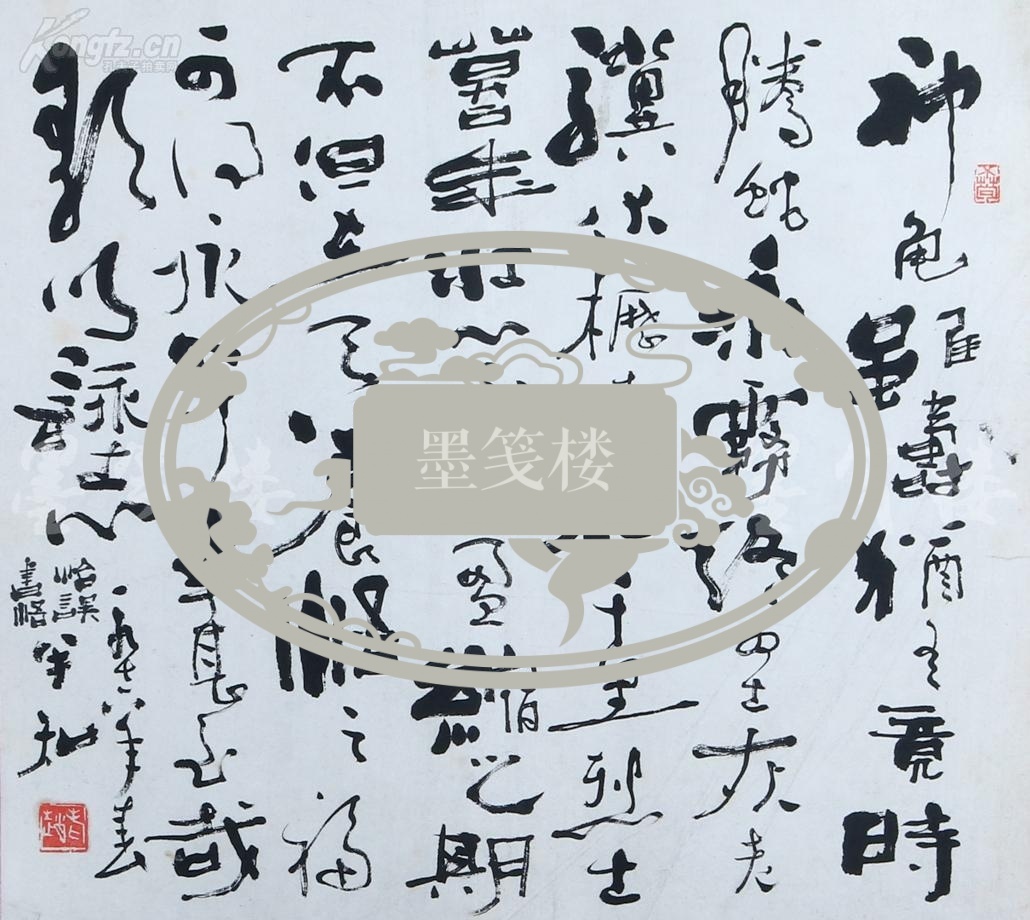 神龜雖壽猶有竟時
騰蛇乘霧終為土灰老
驥伏櫪千里烈士
暮年壯心盈縮之期
不但在天養怡之福
可得永年幸甚至哉
歌以詠志
年春
墨笺楼
Kongfz.cn
孔夫子拍卖网